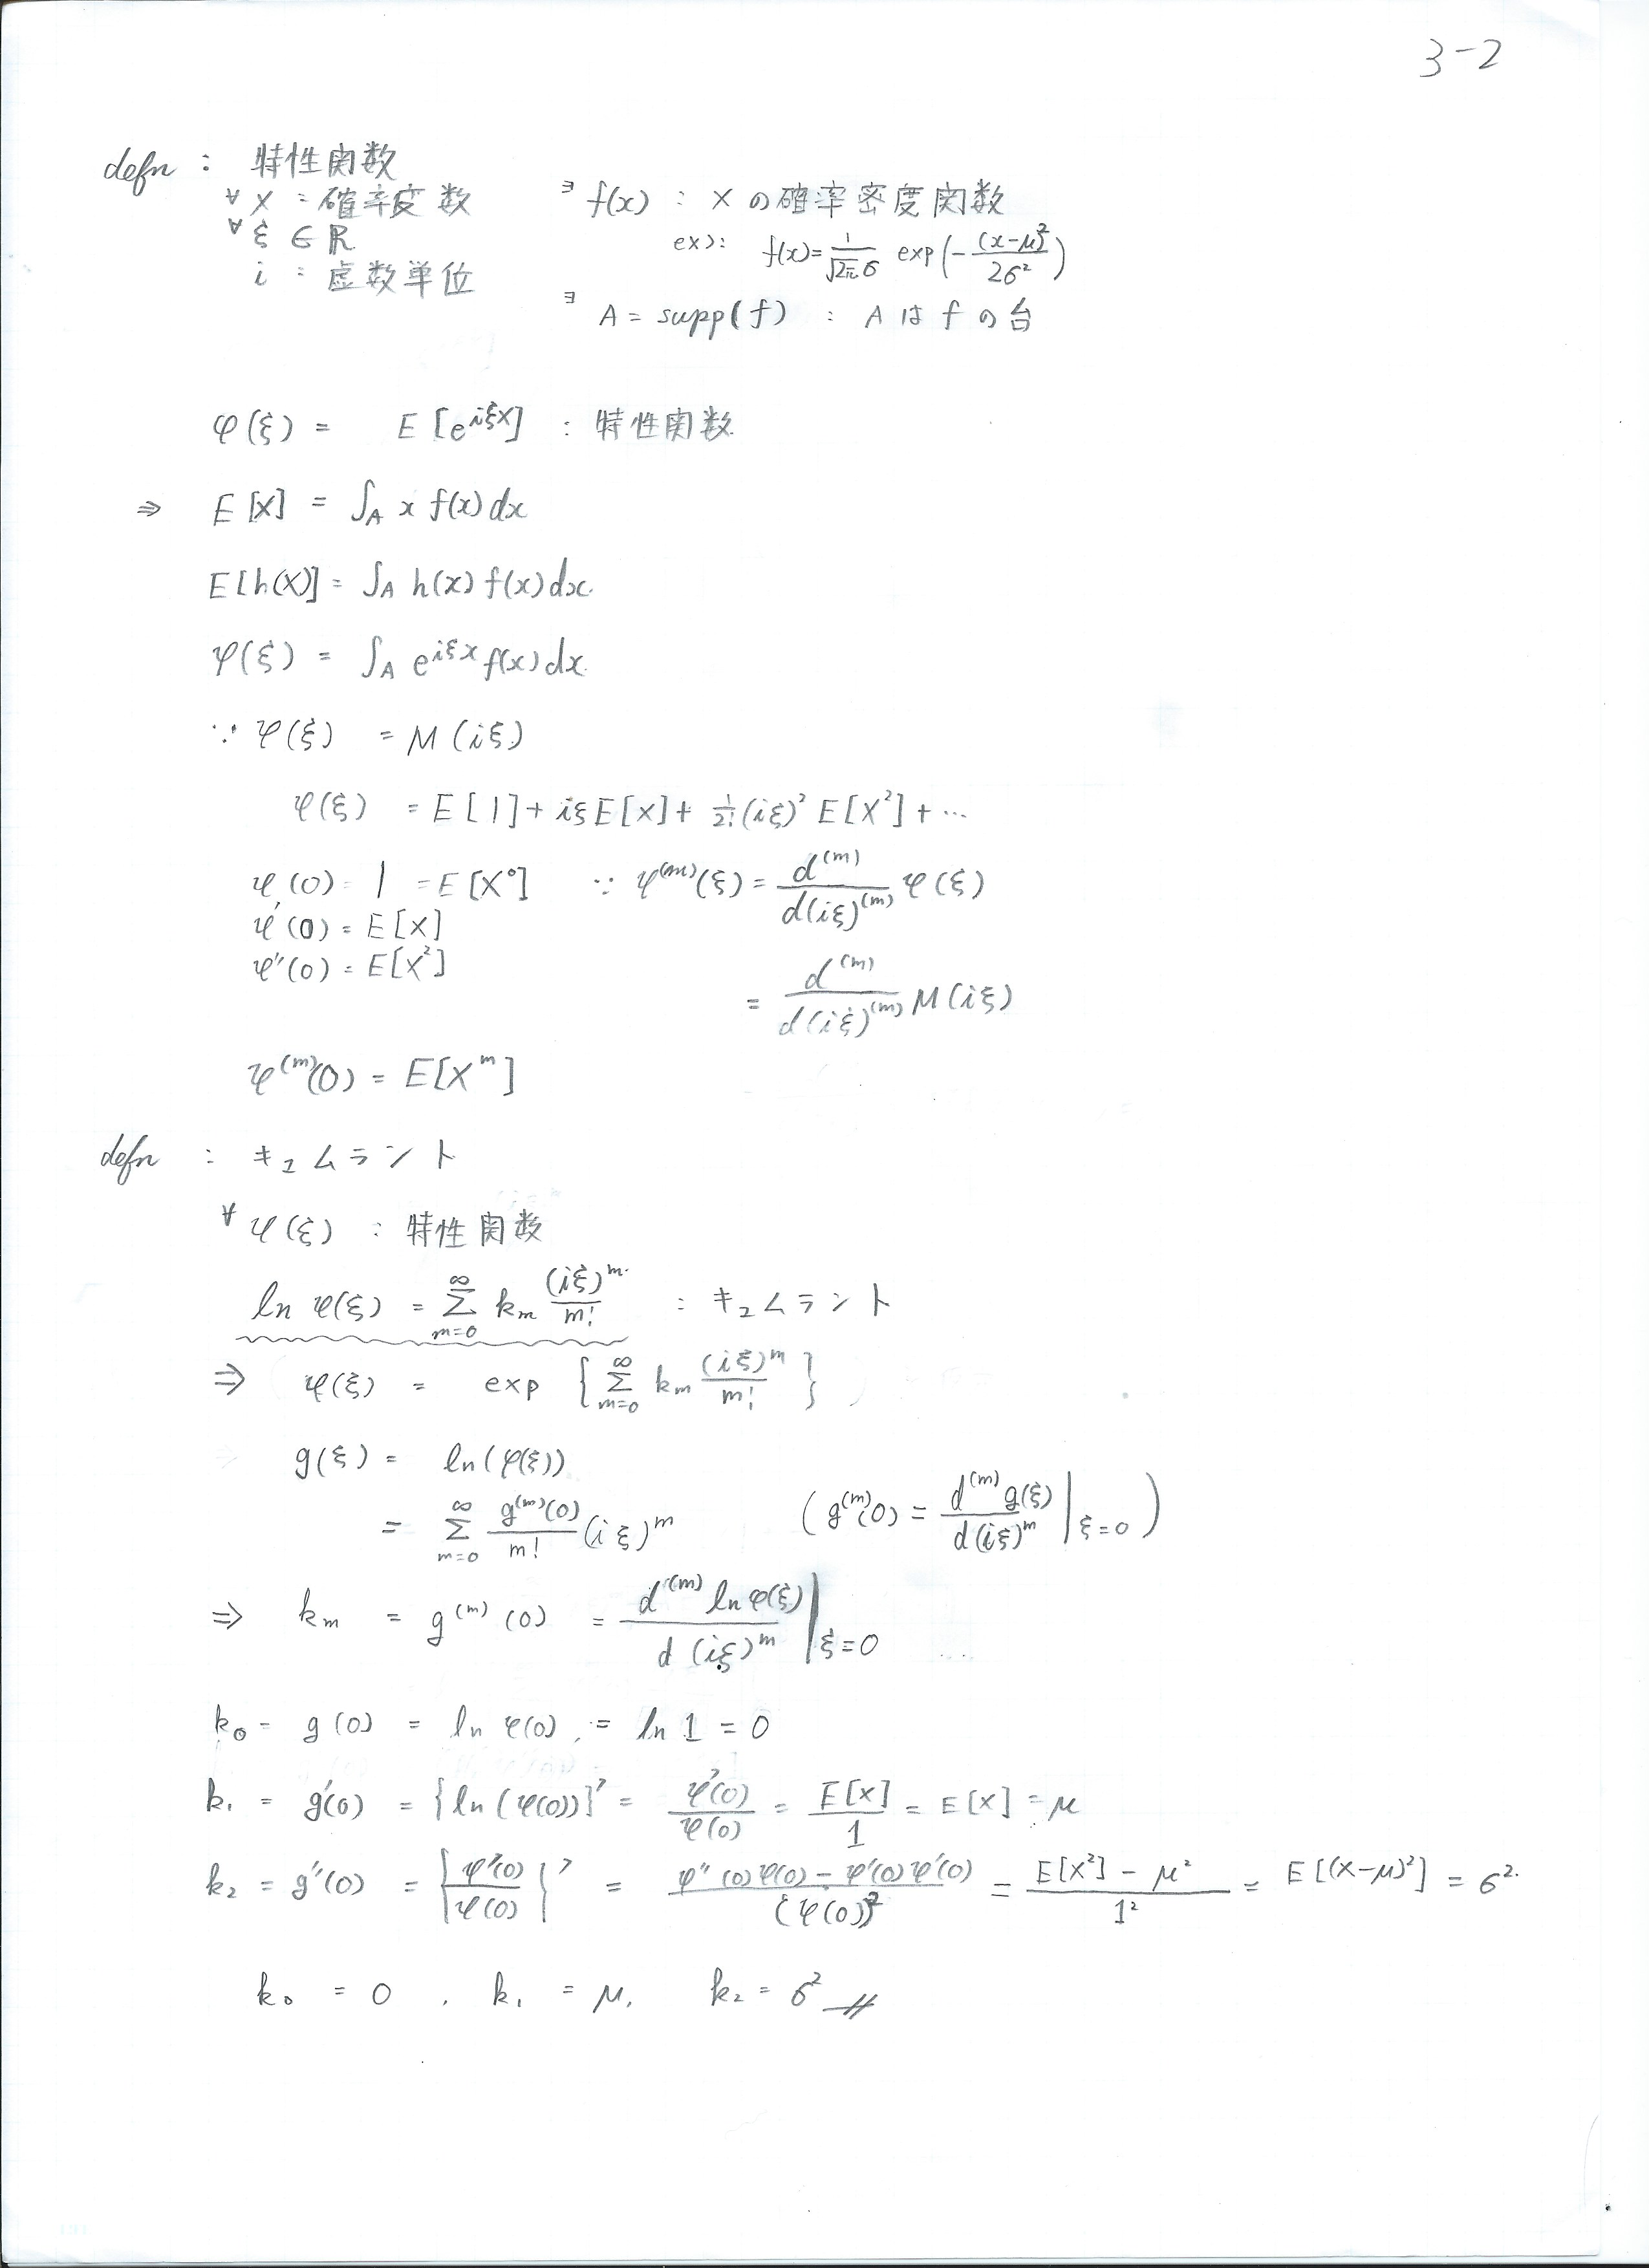 3-2
defn : 特性関数
∀X : 確率変数 ∃f(x) : Xの確率密度関数
∀ξ ∈ ℝ ex): f(x)=1/(√2π σ) exp(-(x-μ)²/2σ²)
i : 虚数単位
∃A = supp(f) : Aはfの台
φ(ξ) = E[e^{iξX}] : 特性関数
⇒ E[X] = ∫_A x f(x)dx
E[h(X)] = ∫_A h(x) f(x)dx.
φ(ξ) = ∫_A e^{iξx} f(x)dx.
∵ φ(ξ) = M(iξ)
φ(ξ) = E[1] + iξE[X] + 1/2! (iξ)² E[X²] + …
φ(0) = 1 = E[X⁰] ∵ φ^{(m)}(ξ) = d^{(m)}/d(iξ)^{(m)} φ(ξ)
φ'(0) = E[X]
φ''(0) = E[X²]
= d^{(m)}/d(iξ)^{(m)} M(iξ)
φ^{(m)}(0) = E[X^m]
defn : キュムラント
∀φ(ξ) : 特性関数
ln φ(ξ) = Σ_{m=0}^∞ k_m (iξ)^m/m! : キュムラント
⇒ φ(ξ) = exp { Σ_{m=0}^∞ k_m (iξ)^m/m! }
g(ξ) = ln(φ(ξ))
= Σ_{m=0}^∞ g^{(m)}(0)/m! (iξ)^m ( g^{(m)}(0) = d^{(m)}g(ξ)/d(iξ)^m |_{ξ=0} )
⇒ k_m = g^{(m)}(0) = d^{(m)} ln φ(ξ)/d(iξ)^m |_{ξ=0}
k₀ = g(0) = ln φ(0) = ln 1 = 0
k₁ = g'(0) = {ln(φ(0))}' = φ'(0)/φ(0) = E[X]/1 = E[X] = μ
k₂ = g''(0) = {φ'(0)/φ(0)}' = φ''(0)φ(0) - φ'(0)φ'(0)/(φ(0))² = E[X²] - μ²/1² = E[(X-μ)²] = σ².
k₀ = 0 , k₁ = μ, k₂ = σ²